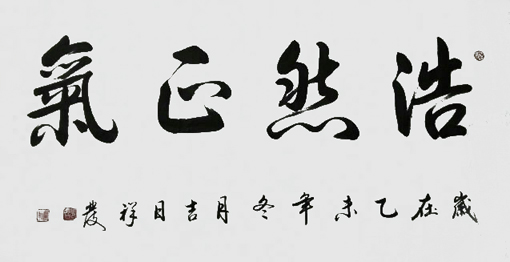 浩然正氣
歲在乙未年冬月吉日祥發